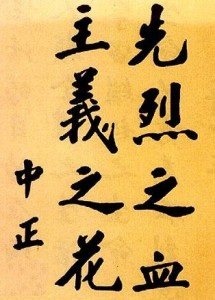 先烈之血
主義之花
中正